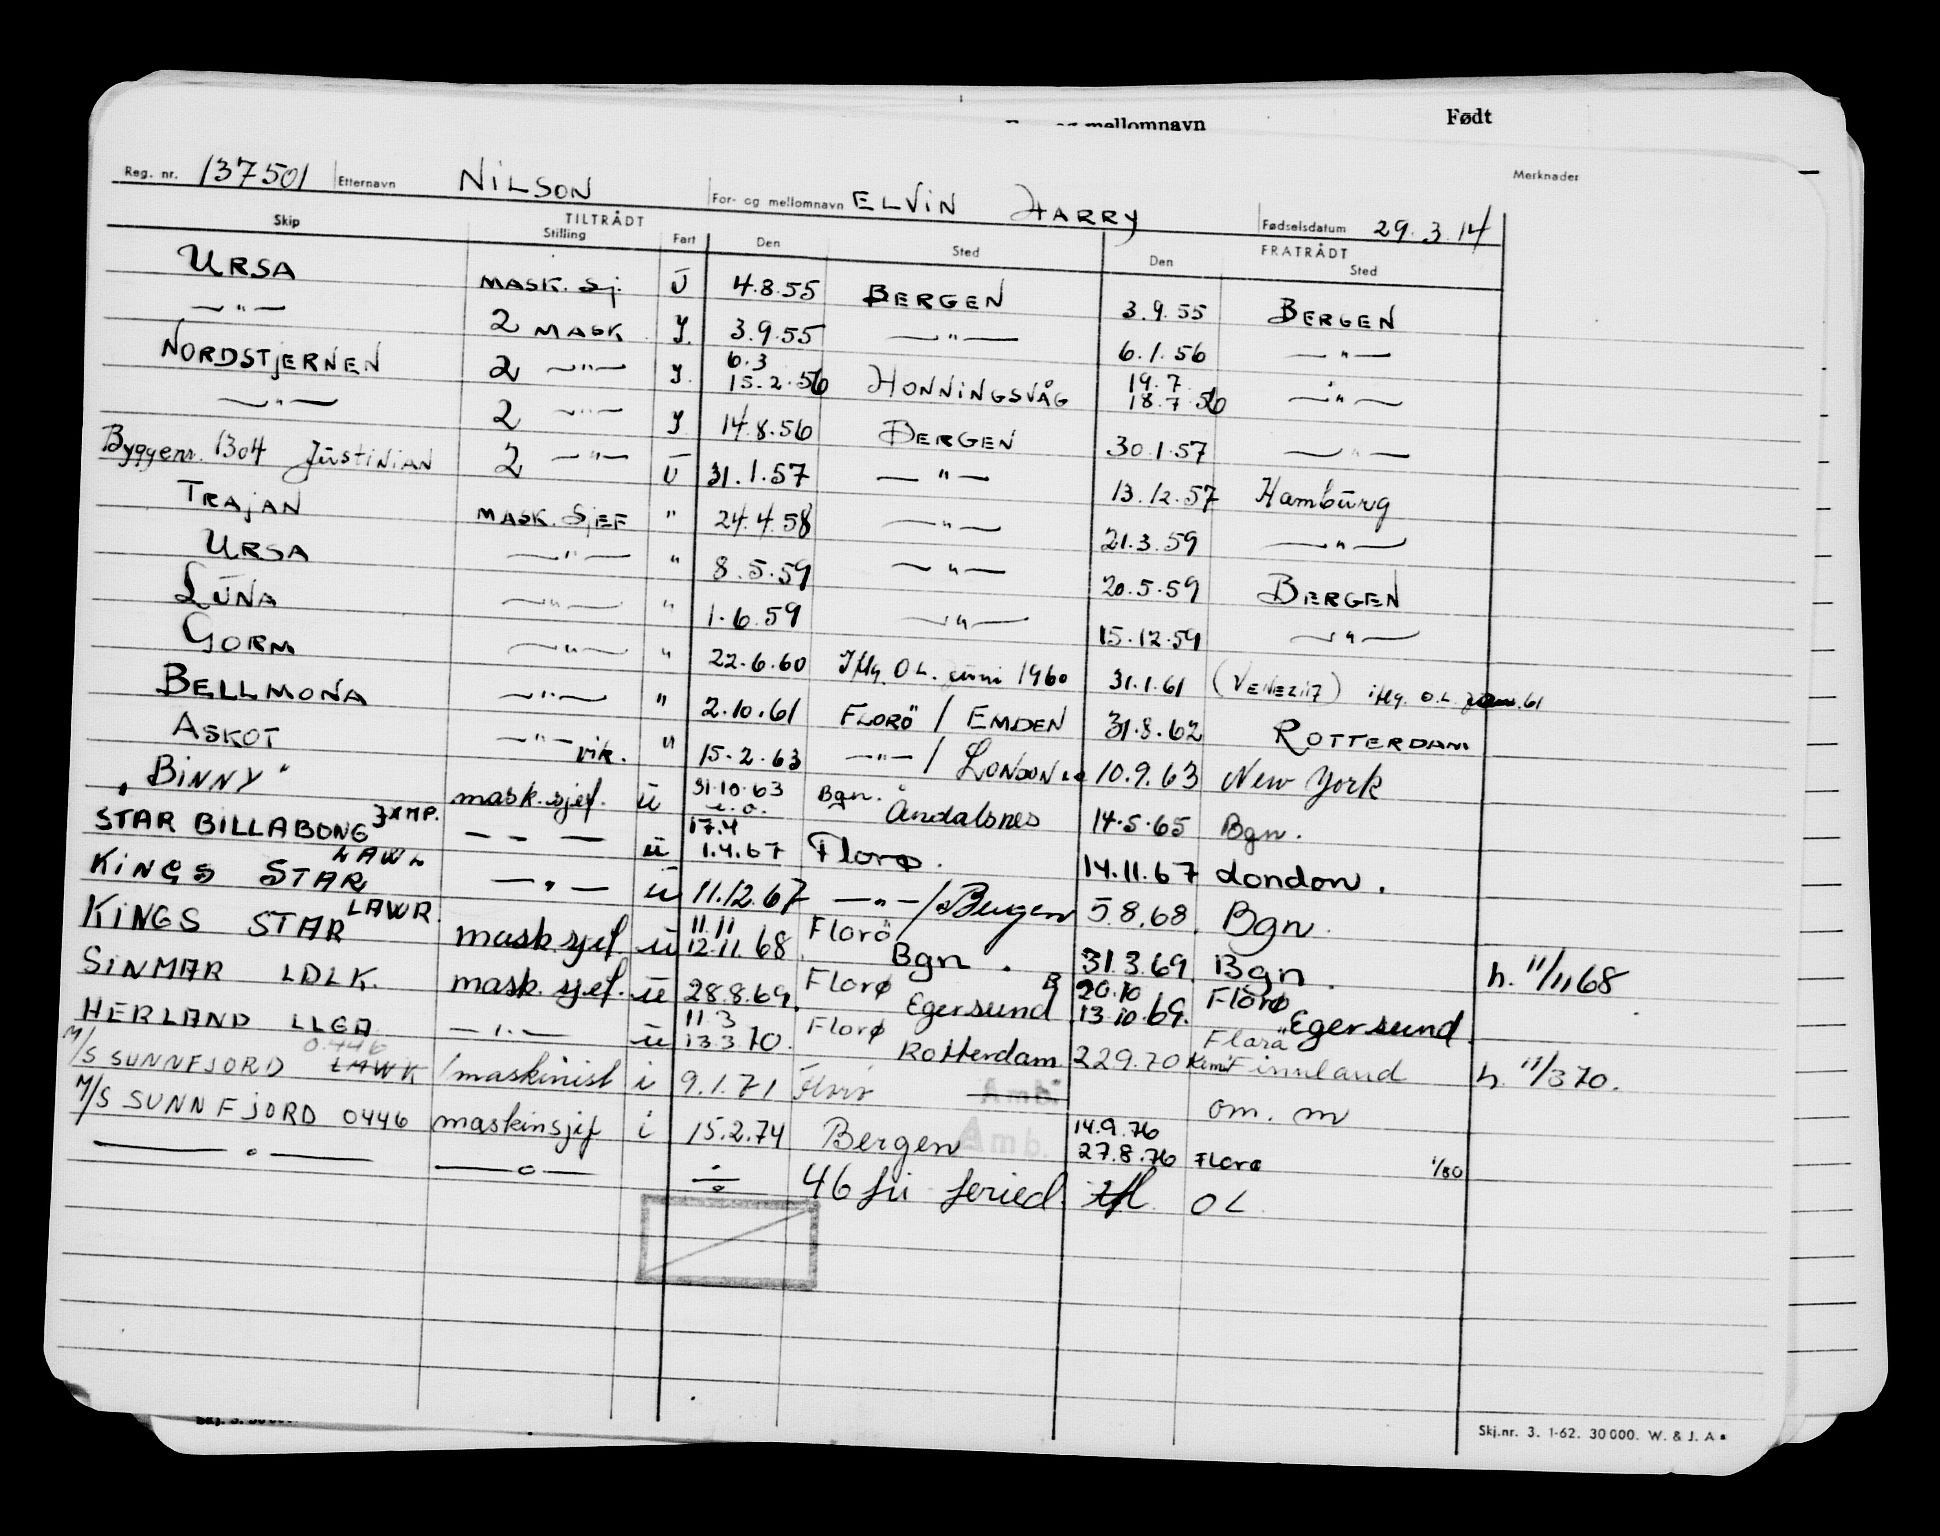 mellomnavn Født
Reg. nr. 137501 Etternavn NILSON For- og mellomnavn ELVIN HARRY Fødselsdatum 29.3.14 Merknader
Skip TILTRÅDT Stilling Fart Den Sted FRATRÅDT Den Sted
URSA MASK. Sj. U 4.8.55 BERGEN 3.9.55 BERGEN
—"— 2 MASK J. 3.9.55 —"— 6.1.56 —"—
NORDSTJERNEN 2 —"— J. 6.3 15.2.56 HONNINGSVÅG 19.7 18.7.56 —"—
—"— 2 —"— J 14.8.56 BERGEN 30.1.57 —"—
Byggenr. 1304 JUSTINIAN 2 —"— U 31.1.57 —"— 13.12.57 Hamburg
TRAJAN MASK. SJEF " 24.4.58 —"— 21.3.59 —"—
URSA —"— " 8.5.59 —"— 20.5.59 BERGEN
LUNA —"— " 1.6.59 —"— 15.12.59 —"—
GORM —"— " 22.6.60 iflg. O.L. juni 1960 31.1.61 (VENEZIA) iflg. O.L. 61
BELLMONA —"— " 2.10.61 FLORÖ / EMDEN 31.8.62 ROTTERDAM
ASKOT —"— vik. " 15.2.63 —"— / LONDON 10.9.63 New York
"BINNY" mask.sjef. u 31.10.63 Bgn. Åndalsnes 14.5.65 Bgn.
STAR BILLABONG JXMP. — — — u 17.4 1.4.67 Florø. 14.11.67 London.
KINGS STAR LAWR —"— u 11.12.67 —"—/Bergen 5.8.68 Bgn.
KINGS STAR LAWR. mask.sjef. u 11.11 12.11.68 Florö Bgn. 31.3.69 Bgn. h. 11/11 68
SINMAR LDLK. mask. sjef. u 28.8.69. Florø Egersund 20.10 13.10.69. Florø Egersund.
HERLAND LLGA —"— u 11.3 13.3.70. Florø Rotterdam 22.9.70 Florø Kemi Finnland h. 11/3 70.
M/S SUNNFJORD 0446 LAWK 1maskinist i 9.1.71 Florø Amb. om. m
M/S SUNNFJORD 0446 maskinsjef i 15.2.74 Bergen Amb. 14.9.76 27.8.76 Florø 1/80
—o— —o— 46 fri feried. tfl. OL
Skj.nr. 3. 1-62. 30 000. W. & J. A